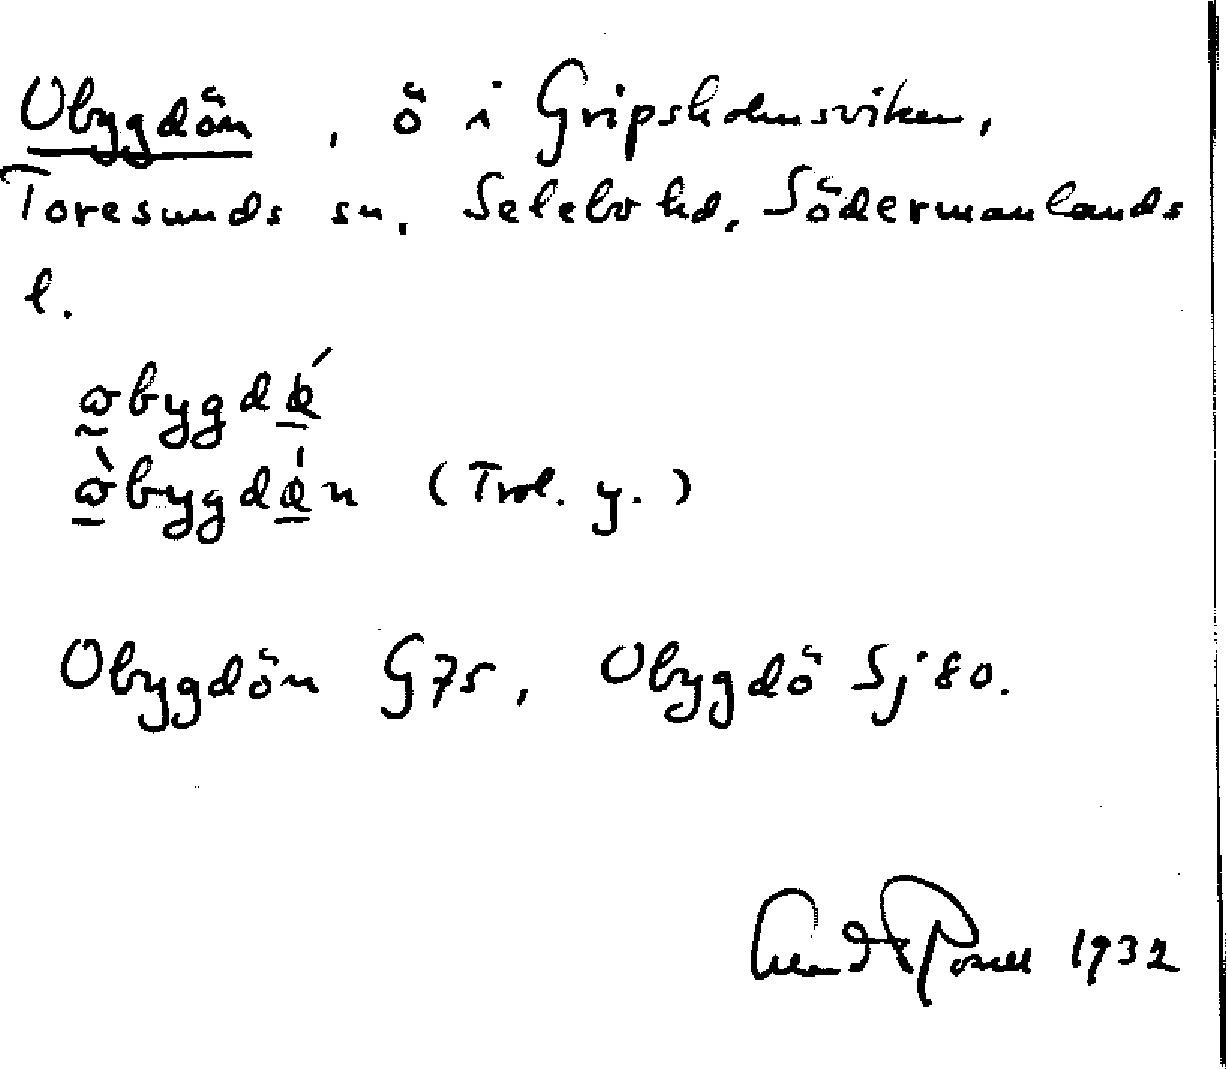 Obygdön, ö i Gripsholmsviken,
Toresunds sn, Selebo hd, Södermanlands
l.
(Trol. y.)
Obygdön G75, Obygdö Sj 80.
1932